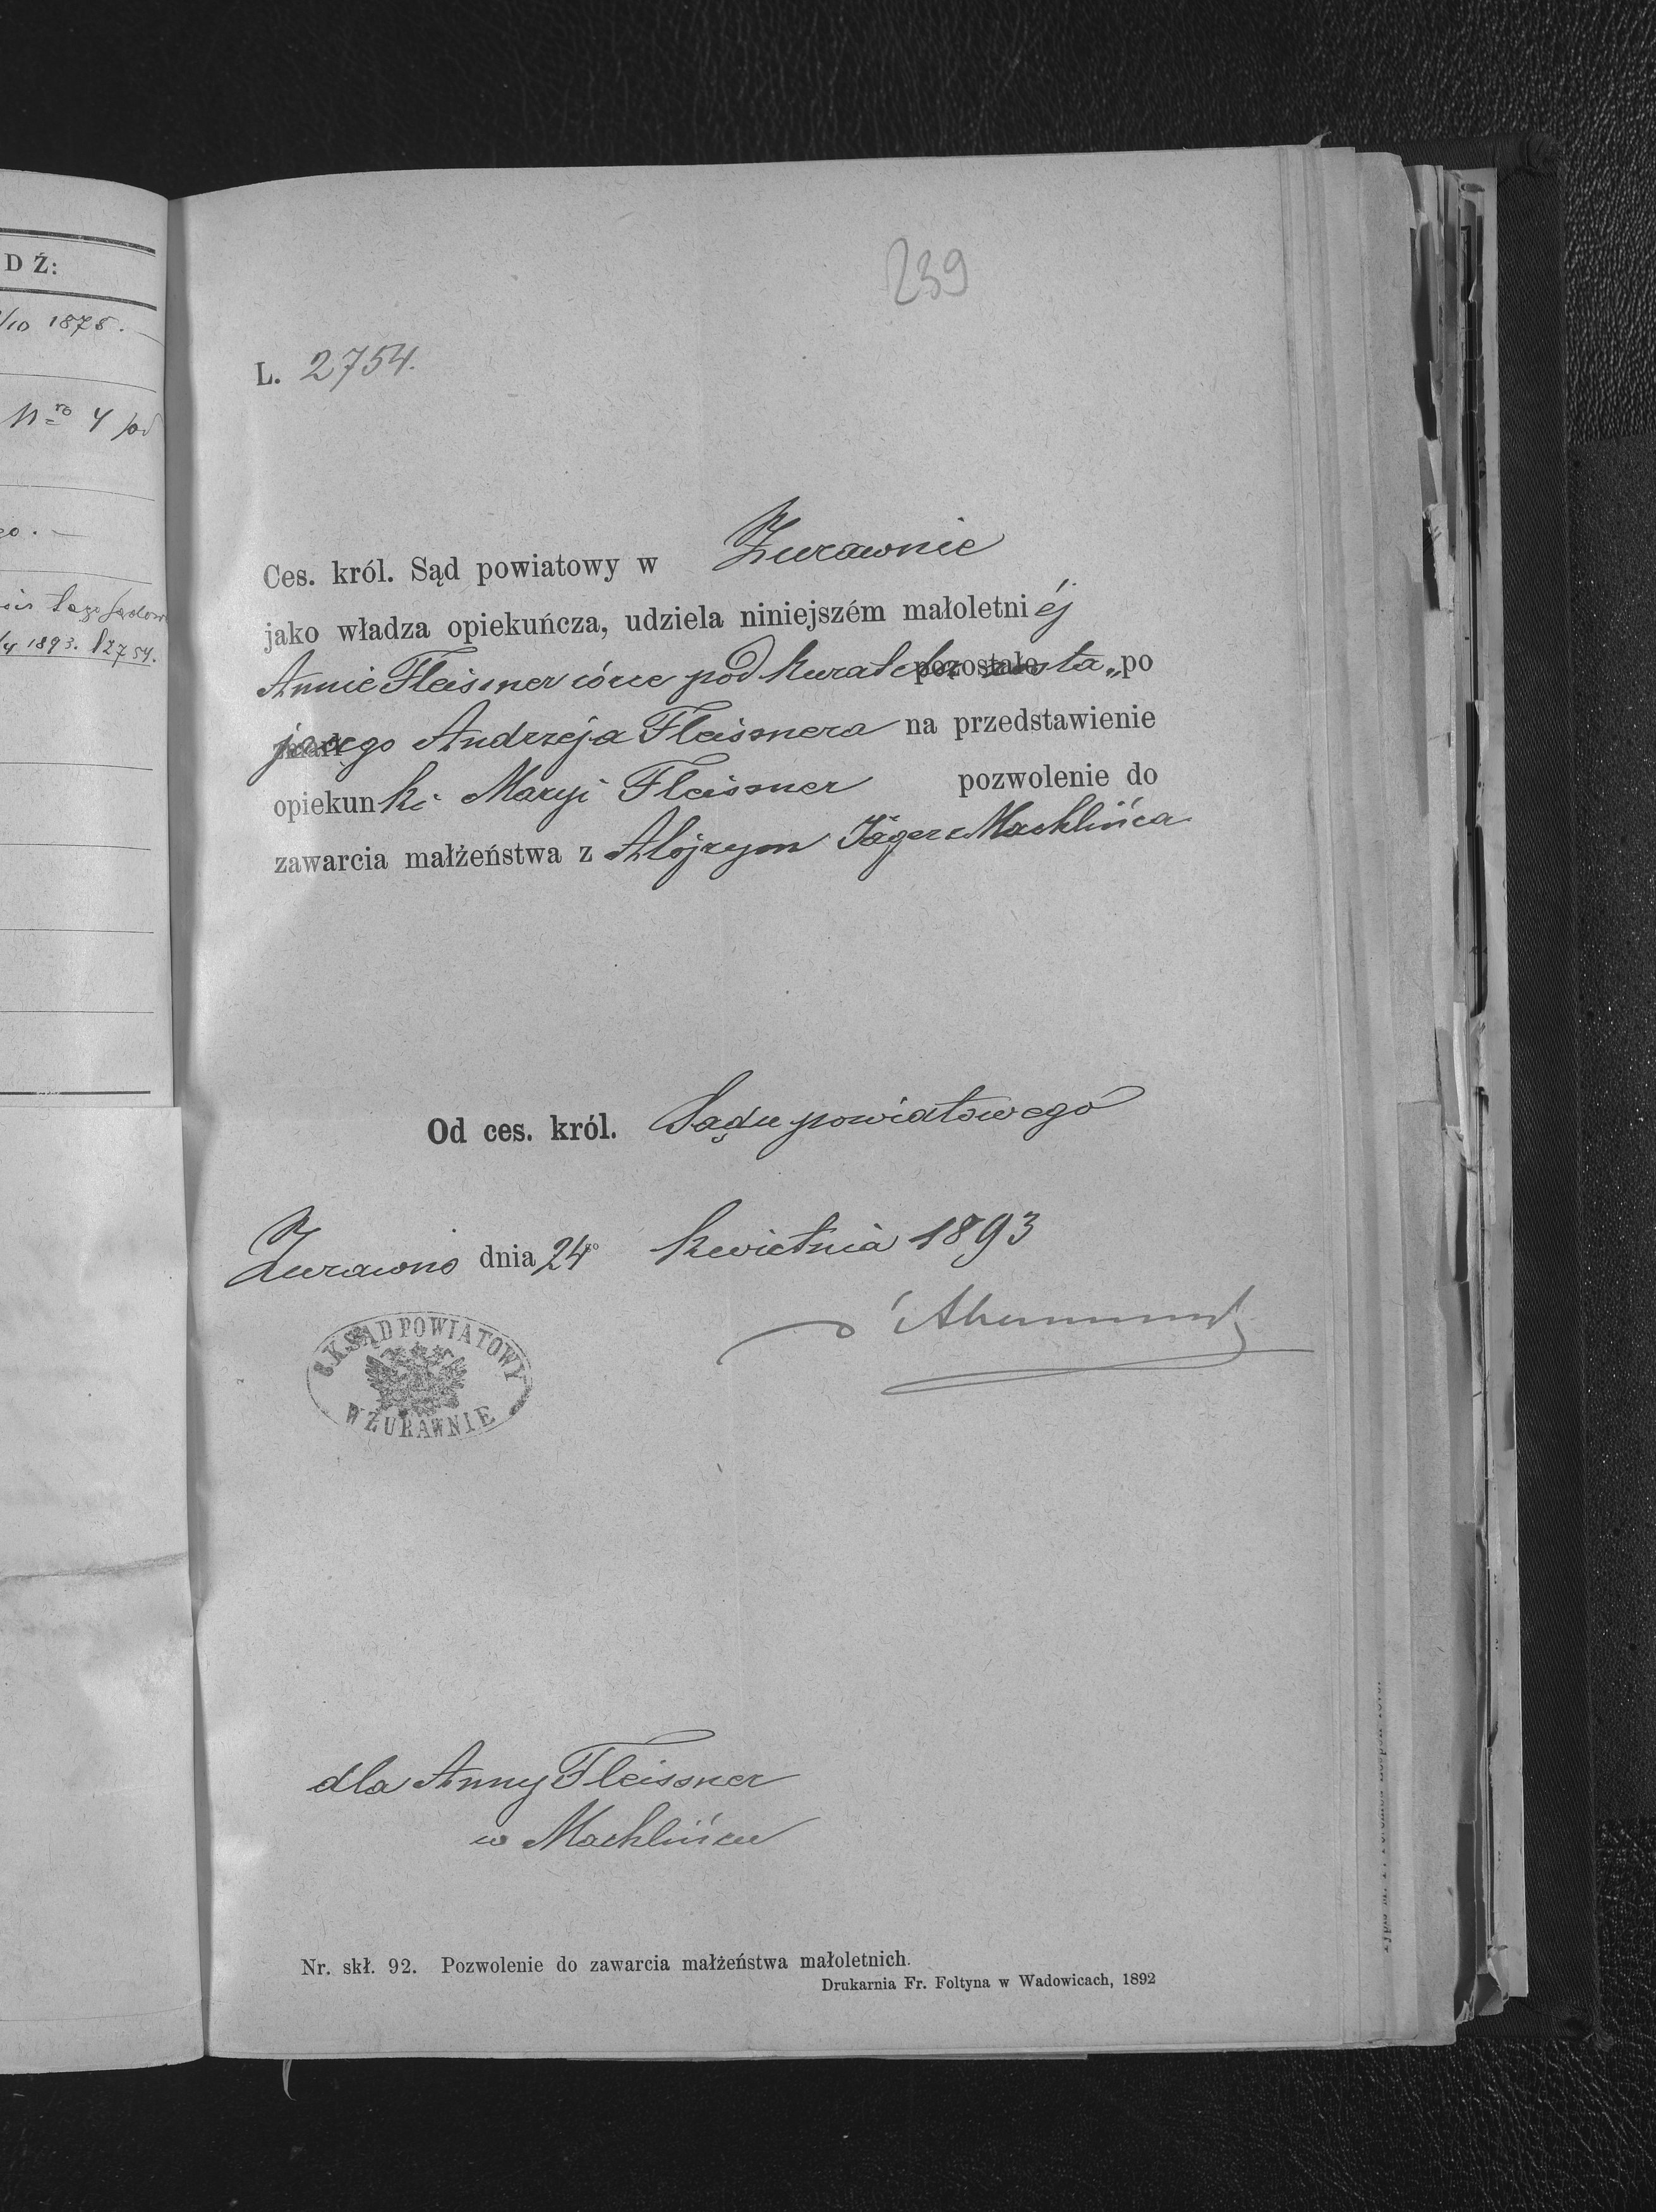 DŹ:
/10 1875.
Nro 4 pod
1893. l2754.
239
L. 2754.
Ces. król. Sąd powiatowy w Żurawnie
jako władza opiekuńcza, udziela niniejszém małoletniéj
Annie Fleissner córce pod kuratelą pozosta„po
jącego Andrzeja Fleissnera na przedstawienie
opiekunki Maryi Fleissner pozwolenie do
zawarcia małżeństwa z Alojzym Jäger z Machlińca
Od ces. król. Sądu powiatowego
Żurawno dnia 24go kwietnia 1893
C.K.SĄD POWIATOWY
W ŻURAWNIE
dla Anny Fleissner
w Machlińcu
Nr. skł. 92. Pozwolenie do zawarcia małżeństwa małoletnich.
Drukarnia Fr. Foltyna w Wadowicach, 1892